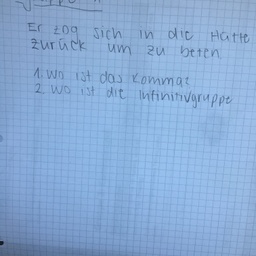 Er zog sich in die Hütte
zurück um zu beten
1. Wo ist das Komma?
2. Wo ist die Infinitivgruppe